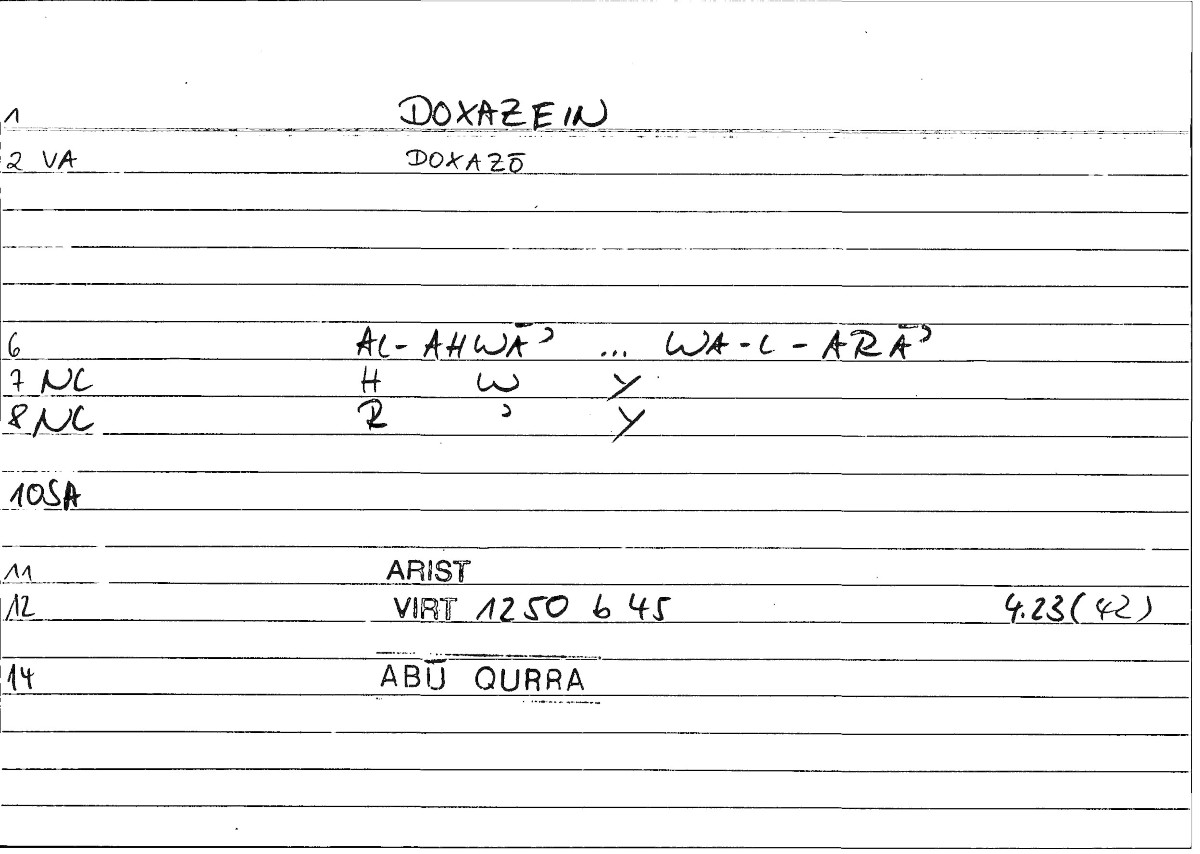 1 DOXAZEIN
2 VA DOXAZŌ
6 AL-AHWĀʾ ... WA-L-ARĀʾ
7 NC H W Y
8 NC R ʾ Y
10 SA
11 ARIST
12 VIRT 1250 b 45 4.23 (42)
14 ABŪ QURRA